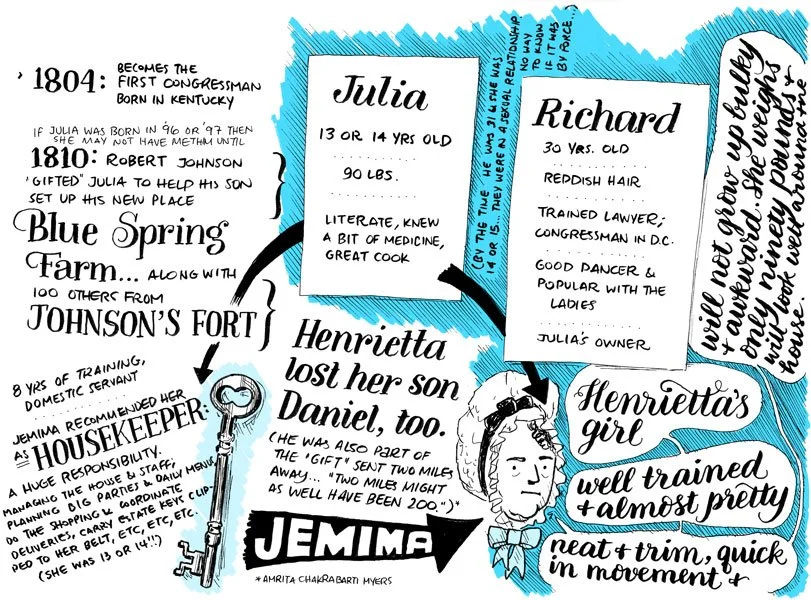 1804: BECOMES THE
FIRST CONGRESSMAN
BORN IN KENTUCKY
IF JULIA WAS BORN IN '96 OR '97 THEN
SHE MAY NOT HAVE MET HIM UNTIL
1810: ROBERT JOHNSON
"GIFTED" JULIA TO HELP HIS SON
SET UP HIS NEW PLACE
Blue Spring
Farm... ALONG WITH
100 OTHERS FROM
JOHNSON'S FORT
8 YRS OF TRAINING,
DOMESTIC SERVANT
JEMIMA RECOMMENDED HER
AS HOUSEKEEPER:
A HUGE RESPONSIBILITY.
MANAGING THE HOUSE & STAFF;
PLANNING BIG PARTIES & DAILY MENUS,
DO THE SHOPPING & COORDINATE
DELIVERIES, CARRY ESTATE KEYS CLIP-
PED TO HER BELT, ETC, ETC, ETC.
(SHE WAS 13 OR 14!!)
Julia
13 OR 14 YRS OLD
90 LBS.
LITERATE, KNEW
A BIT OF MEDICINE,
GREAT COOK
(BY THE TIME HE WAS 31 & SHE WAS
14 OR 15... THEY WERE IN A SEXUAL RELATIONSHIP
NO WAY
TO KNOW
IF IT WAS
BY FORCE...)
Richard
30 YRS. OLD
REDDISH HAIR
TRAINED LAWYER;
CONGRESSMAN IN D.C.
GOOD DANCER &
POPULAR WITH THE
LADIES
JULIA'S OWNER
Henrietta
lost her son
Daniel, too.
(HE WAS ALSO PART OF
THE "GIFT" SENT TWO MILES
AWAY... "TWO MILES MIGHT
AS WELL HAVE BEEN 200.")"
JEMIMA
*AMRITA CHAKRABARTI MYERS
Henrietta's
girl
well trained
+ almost pretty
neat + trim, quick
in movement +
will not grow up bulky
+ awkward. She weighs
only ninety pounds +
will look well around the
house.